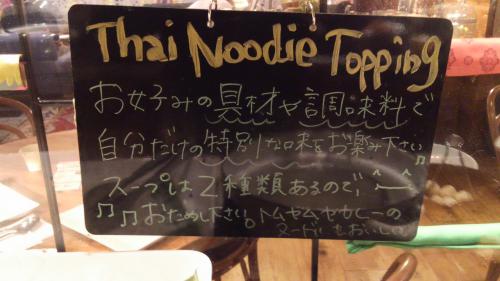 Thai Noodle Topping
お女子みの具材や調味料で
自分だけの特別な味をお楽み下さい♫
スープは2種類あるので、
♫♫おためし下さい。トムヤムヤカレーの
ヌードルもおいしい